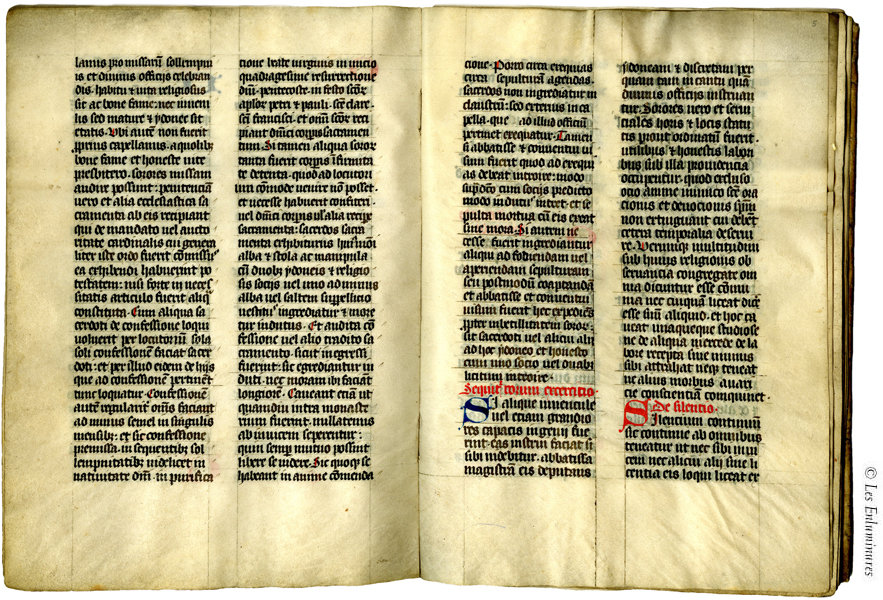 lannis pro missarum sollempni
is et diuinis officijs celebran
dis. habitu & uita religiosus
sit ac bone fame: nec iuueni
lis sed mature & ydonee sit
etatis. Vbi autē non fuerit
pprius capellanus. a quolibȝ
bone fame et honeste uite
presbitero. sorores missam
audire possint: penitenciā
uero et alia ecclesiastica sa
cramenta ab eis recipiant
qui de mandato uel aucto
ritate cardinalis cui genera
liter iste ordo fuerit cōmissꝰ
ea exhibendi habuerint po
testatem: nisi forte in neces
sitatis articulo fuerit aliqͥ
constituta. Cum aliqua sa
cerdoti de confessione loqui
uoluerit per locutoriū sola
soli confessionem faciat sacer
doti: et per illud eidem de hijs
que ad confessionem pertinent
tunc loquatur. Confessionē
autē regularit̉ om̄s faciant
ad minus semel in singulis
mensibȝ: et sic confessione
premissa. in sequentibȝ sol
lempnitatibȝ uidelicet in
natiuitate dn̄i. in purifica
tione beate uirginis in inicio
quadragesime resurrectione
dn̄i. pentecoste. in festo scōr̄
aplōr̄ petri & pauli. scē clare.
scī francisci. et om̄i scōr̄ reci
piant dn̄ici corpus sacramen
tum. Si tamen aliqua soror
tanta fuerit corpis īfirmita
te detenta. quod ad locutori
um cōmode uenire non posset.
et necesse habuerit confiteri.
uel dn̄ici corpus ul̓ alia recipe
sacramenta: sacerdos sacra
menta exhibiturus huiꝰmōi
alba & stola ac manipula
cū duobȝ ydoneis & religio
sis socijs uel uno ad minus
alba uel saltem suppellicio
uestitis ingrediatur & more
tur indutus. Et audita cō
fessione uel alio tradito sa
cramento. sicut ingressi
fuerint: sic egrediantur in
duti. nec moram ibi faciāt
longiorē. Caueant eciā ut
quamdiu intra monaste
rium fuerint. nullatenus
ab inuicem seperentur:
quin semꝑ mutuo possint
libere se uidere. Sic quoqȝ se
habeant in anime cōmenda
cione. Porro circa exequias
circa sepulturā agendas.
sacerdos non ingrediatur in
claustrū: sed exterius in ca
pella. que ad illud officiū
pertinet exequatur. Tamen
si abbatisse & conuentui ui
sum fuerit quod ad exequi
as debeat introire: modo
supͣdc̄o cum socijs predicto
modo indutis intret. et se
pulta mortua cū eis exeat
sine mora. Si autem ne
cesse fuerit ingrediantur
aliqui ad fodiendam uel
aperiendam sepulturam
seu postmodū coaptandā
et abbatisse et conuentui
uisum fuerit hec expediēs
ꝓpter imbecillitatem soror̄:
sit sacerdoti uel alicui alij
ad hec ydoneo et honesto
cum uno socio uel duobȝ
licitum introire.
Sequit̉ eorum exercitio
Si alique iuuencule
uel etiam grandio
res capacis ingenij fue
rint. eas instrui faciat si
sibi uidebitur. abbatissa
magistrā eis deputans
ydoneam & discretam per
quam tam in cantu quā
diuinis officijs instruan
tur. Sorores uero et serui
ciales horis & locis statu
tis prout ordinatū fuerit.
utilibus & honestis labori
bus sub illa prouidencia
occupentur. quod excluso
ocio anime inimico scē ora
cionis et deuocionis spm̄
non extinguant cui debēt
cetera temporalia deserui
re. Verumqȝ multitudini
sub huius religionis ob
seruancia congregate om
nia dicuntur esse cōmu
nia nec cuiquā liceat dicē
esse suū aliquid. et hoc ca
ueat unaqueque studiose
ne de aliqua mercede de la
bore recepta siue munus
sibi attrahat neqȝ teneat
ne alius morbus auari
cie conscientiā comquinet.
De silentio.
Silentium continuū
sic continue ab omnibus
teneatur ut nec sibi inui
cem nec alicui alij sine li
centia eis loqui liceat ex
5
© Les Enluminures